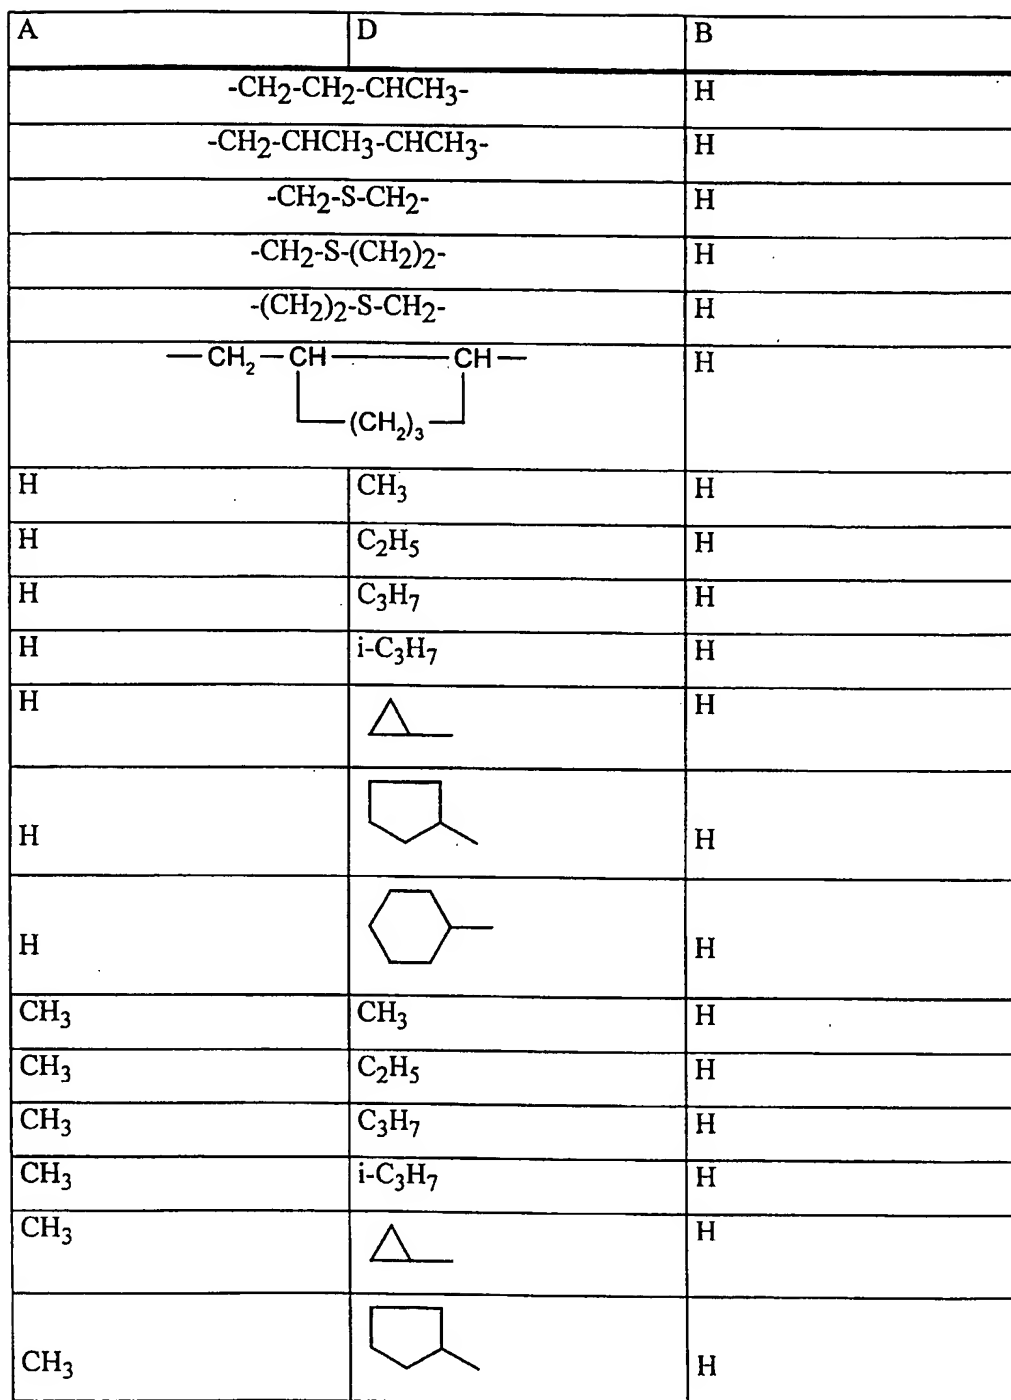 A D B
-CH2-CH2-CHCH3- H
-CH2-CHCH3-CHCH3- H
-CH2-S-CH2- H
-CH2-S-(CH2)2- H
-(CH2)2-S-CH2- H
—CH₂—CH——CH— H
(CH₂)₃
H CH₃ H
H C₂H₅ H
H C₃H₇ H
H i-C₃H₇ H
H H
H H
H H
CH₃ CH₃ H
CH₃ C₂H₅ H
CH₃ C₃H₇ H
CH₃ i-C₃H₇ H
CH₃ H
CH₃ H